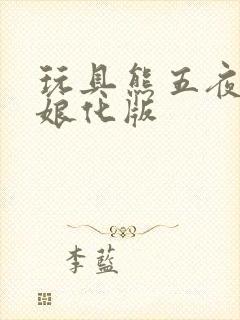 玩具熊五夜
娘化版
李藍